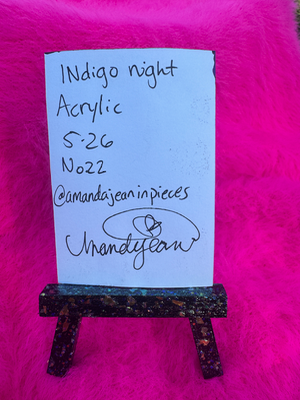 INdigo night
Acrylic
5-26
No22
@amandajeaninpieces